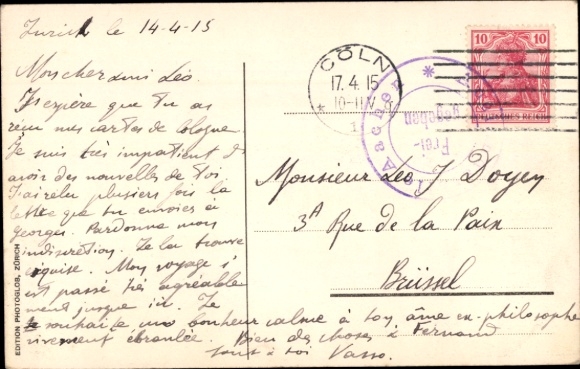 Zurich le 14-4-15
Mon cher ami Léo.
J'espère que tu as
reçu mes cartes de Cologne
Je suis très impatient d'
avoir des nouvelles de toi.
J'ai relu plusieurs fois la
lettre que tu envoies à
Georges. Pardonne mon
indiscrétion. Je la trouve
exquise. Mon voyage s'
est passé très agréable
ment jusque ici. Je
te souhaite un bonheur calme à ton âme ex-philosophe
vivement ébranlée. Bien des choses à Fernand
tout à toi Vasso.
EDITION PHOTOGLOB, ZÜRICH
CÖLN
17.4.15
10-11V
* 1
Aachen
Frei-
gegeben
10 10
DEUTSCHES REICH
Monsieur Léo J Doyen
3A Rue de la Paix
Brüssel